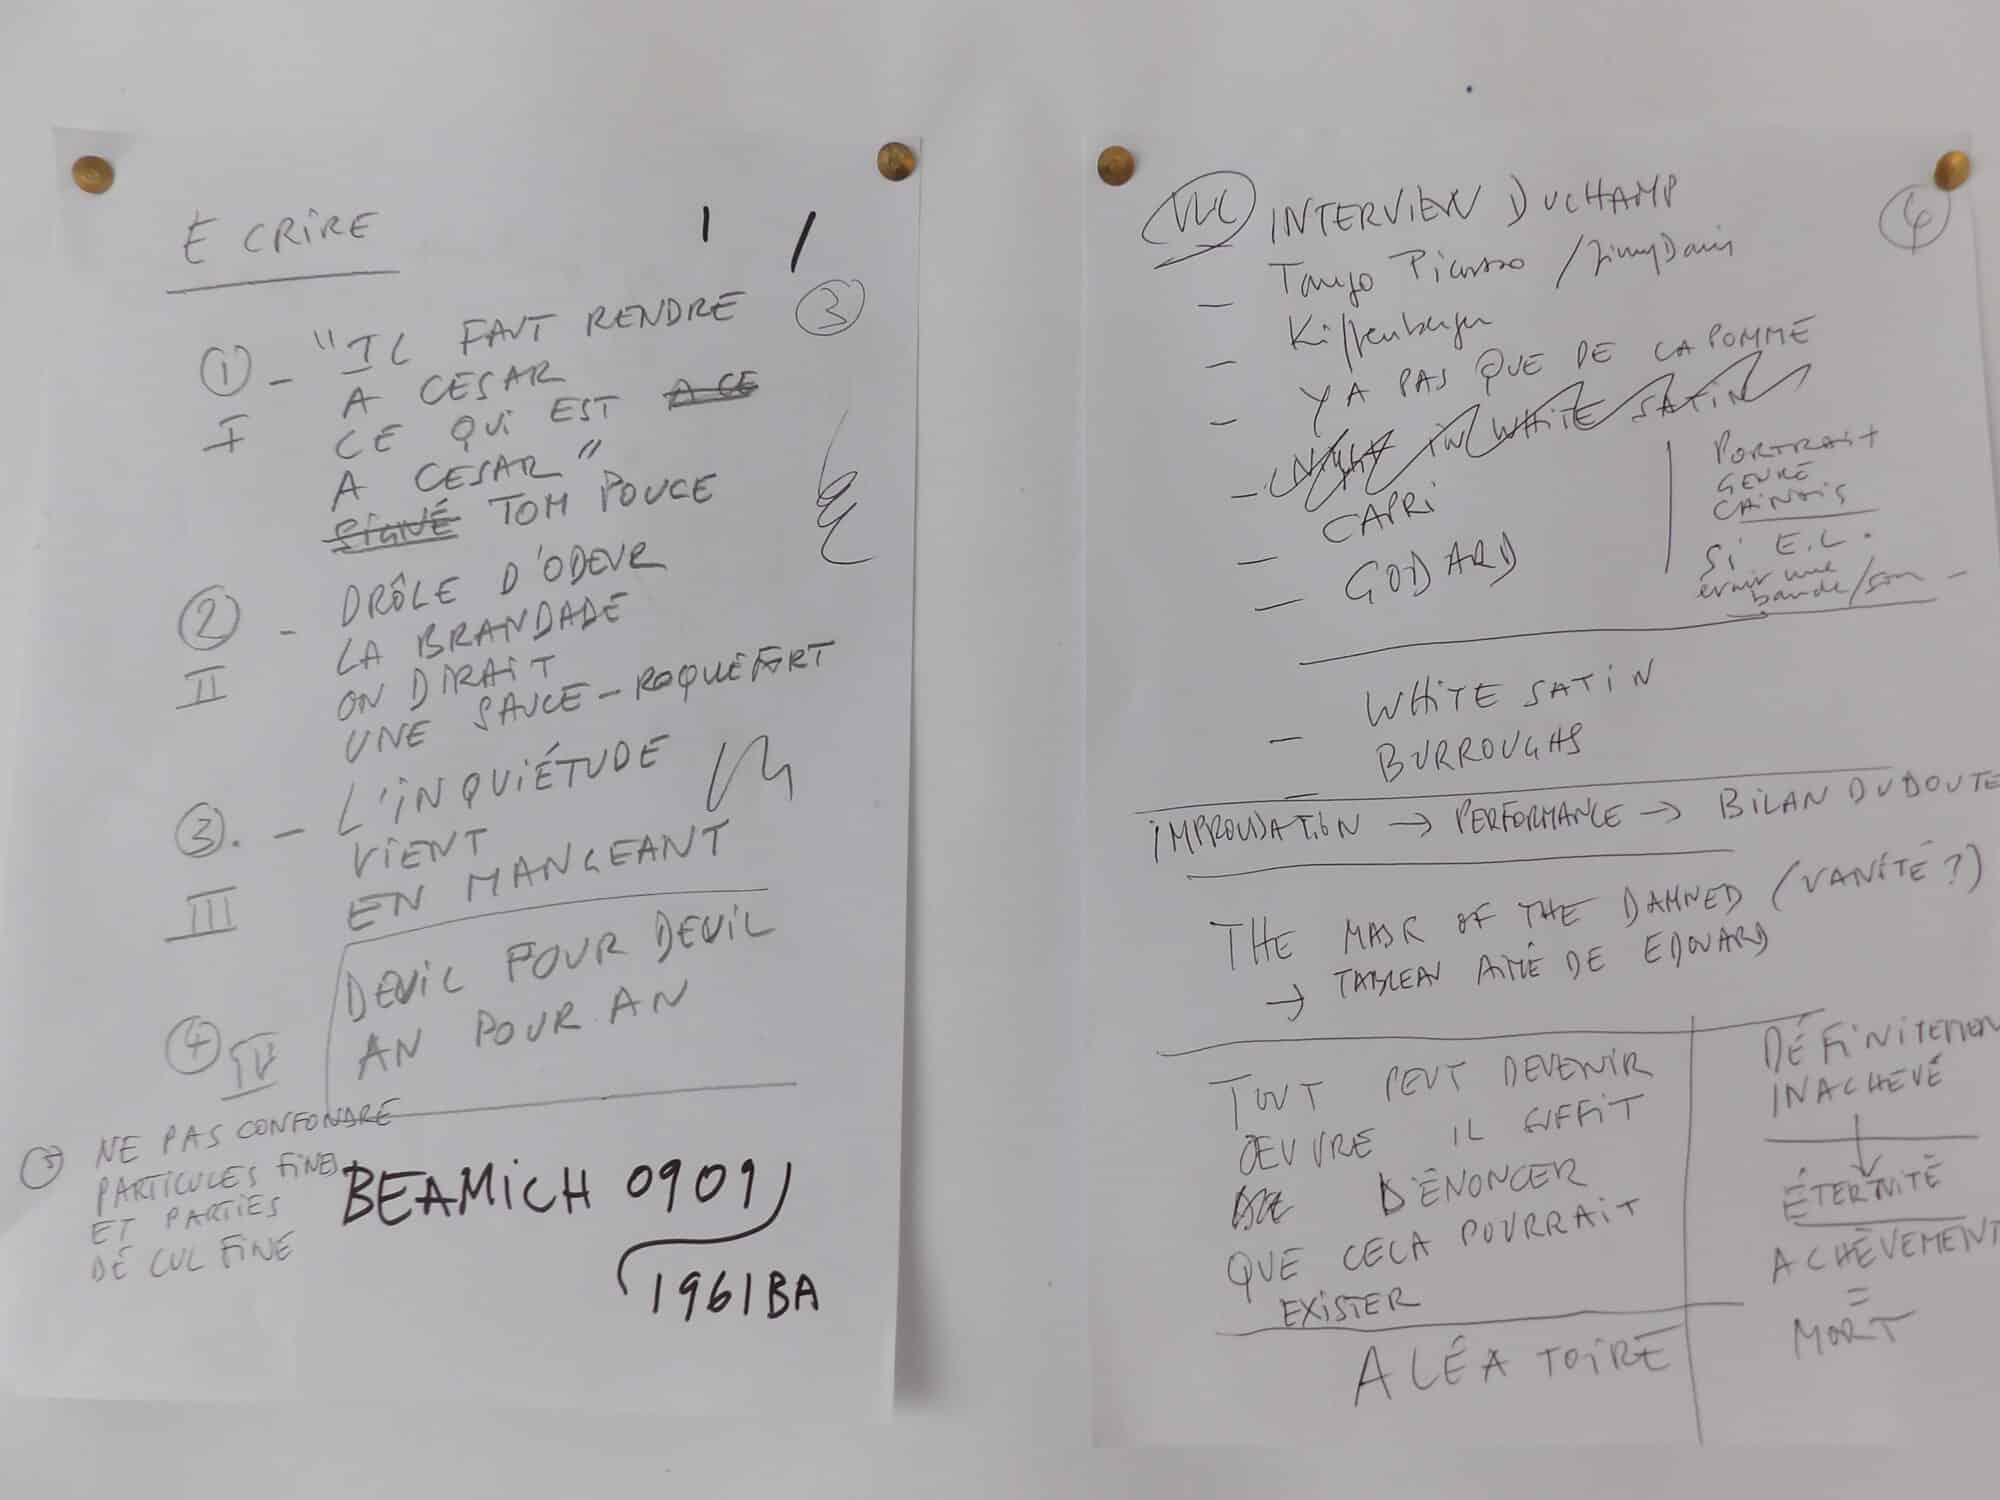 ECRIRE
3
1 - "IL FAUT RENDRE
I
A CESAR
CE QUI EST A CE
A CESAR"
SIGNÉ TOM POUCE
2 - DRÔLE D'ODEUR
II
LA BRANDADE
ON DIRAIT
UNE SAUCE-ROQUEFORT
3. - L'INQUIÉTUDE
III
VIENT
EN MANGEANT
4 IV
DEUIL POUR DEUIL
AN POUR AN
5 NE PAS CONFONDRE
PARTICULES FINES
ET PARTIES
DE CUL FINE
BEAMICH 0909
1961BA
4
INTERVIEW DUCHAMP
- Tango Picasso / Jimmy Davis
- Kippenberger
- Y A PAS QUE DE LA POMME
- NIGHT IN WHITE SATIN
CAPRI
- GODARD
PORTRAIT
GENRE
SI E.L.
bande/son -
- WHITE SATIN
- BURROUGHS
IMPROVISATION → PERFORMANCE → BILAN DU DOUTE
THE MASK OF THE DAMNED (VANITÉ ?)
→ TABLEAU AIMÉ DE EDOUARD
TOUT PEUT DEVENIR
ŒUVRE IL SUFFIT
D'ÉNONCER
QUE CELA POURRAIT
EXISTER
ALÉATOIRE
DÉFINITEMEN
INACHEVÉ
↓
ÉTERNITÉ
ACHÈVEMENT
=
MORT